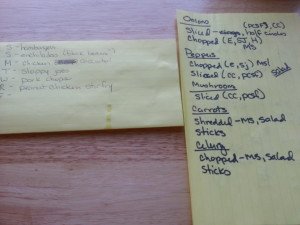 S - hamburgers
S - enchiladas (black beans)
M - chicken
T - Sloppy joes
W - pork chops
R - peanut chicken stirfry
F -
Onions
Sliced - half circles
(pcsf, CC)
Chopped (E, SJ, H)
MS
Peppers
Chopped (E, SJ) MS
Sliced (CC, pcsf) Salad
Mushroom
sliced (CC, pcsf)
Carrots
shredded - MS, salad
sticks
Celery
chopped - MS, salad
sticks